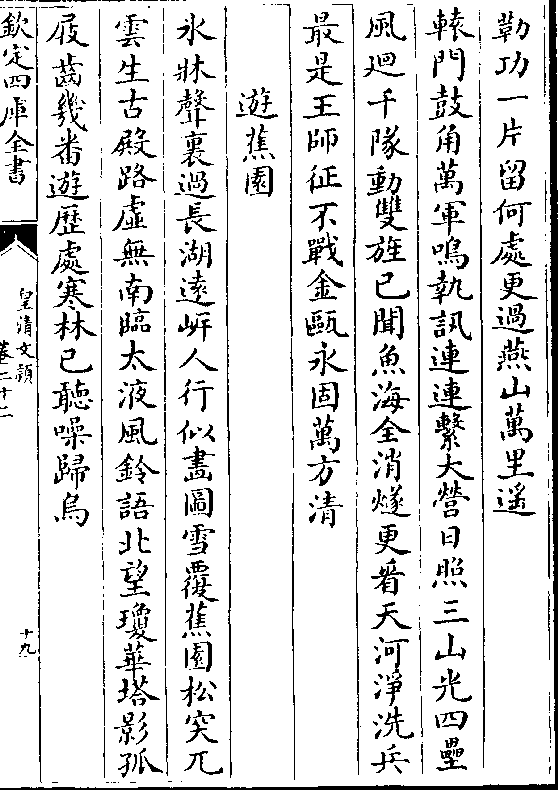 勒功一片留何處更過燕山萬里遥
轅門鼓角萬軍鳴執訊連連繫大營日照三山光四壘
風廻千隊動雙旌已聞魚海全消燧更看天河淨洗兵
最是王師征不戰金甌永固萬方清
遊蕉園
氷牀聲裏過長湖逺㟁人行似畫圖雪覆蕉園松突兀
雲生古殿路虛無南臨太液風鈴語北望瓊華塔影孤
屐齒幾番遊歴處寒林已聽噪歸烏
欽定四庫全書
皇清文頴
卷二十二
十九